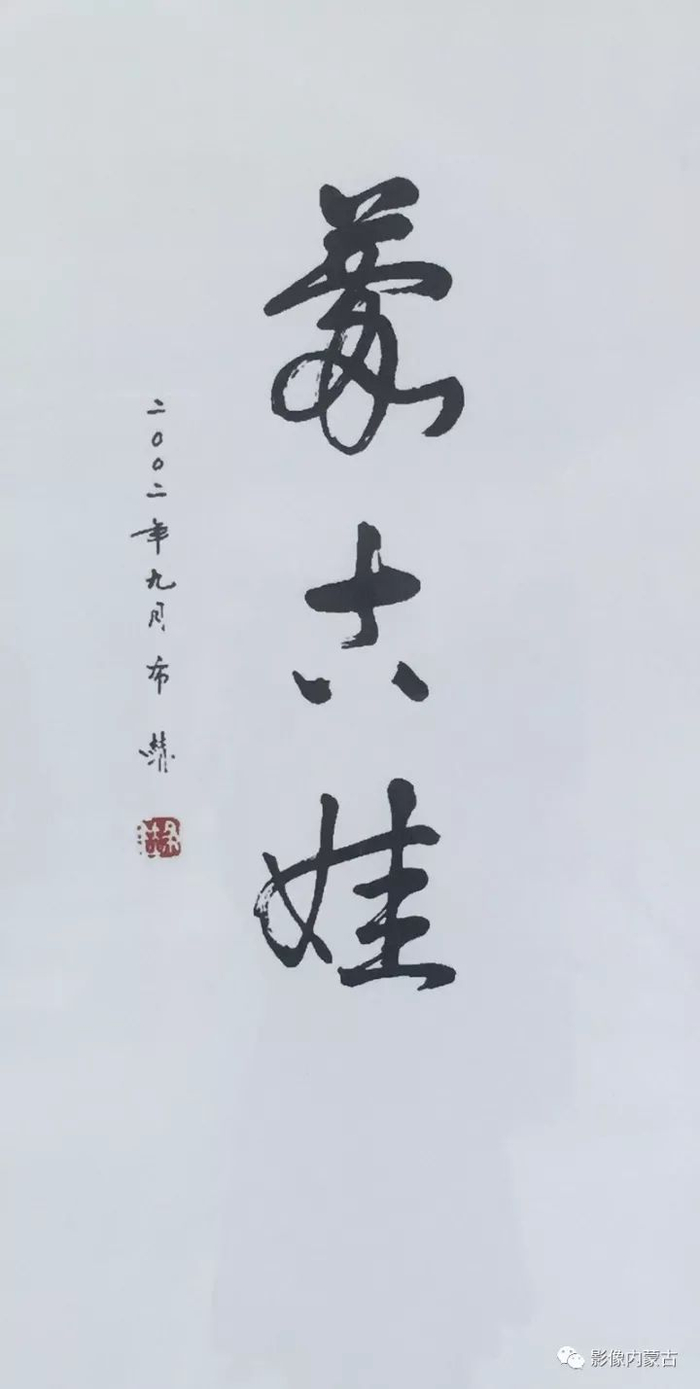 蒙古娃
二〇〇二年九月布赫
影像内蒙古